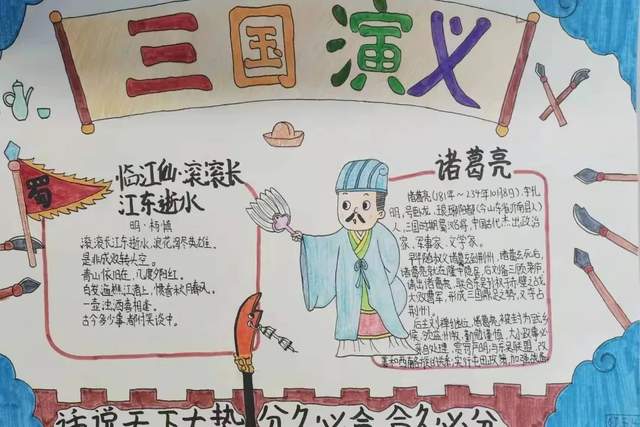 三国演义
蜀
临江仙·滚滚长
江东逝水
明·杨慎
滚滚长江东逝水,浪花淘尽英雄。
是非成败转头空。
青山依旧在,几度夕阳红。
白发渔樵江渚上,惯看秋月春风。
一壶浊酒喜相逢。
古今多少事,都付笑谈中。
诸葛亮
诸葛亮(181年~234年10月8日),字孔
明,号卧龙,琅琊阳都(今山东省沂南县人)
人,三国时期蜀汉丞相,中国古代杰出政治
家、军事家、文学家。
早年随叔父诸葛玄到荆州,诸葛玄死后,
诸葛亮就在隆中隐居。后刘备三顾茅庐,
请出诸葛亮,联合东吴孙权于赤壁之战
大败曹军,形成三国鼎足之势,又夺占
荆州。
后主刘禅继位,诸葛亮被封为武乡
侯,领益州牧,勤勉谨慎,大小政事必
亲自处理,赏罚严明;与东吴联盟,改
善和西南各族的关系;实行屯田政策,加强战备
话说天下大势 分久必合 合久必分